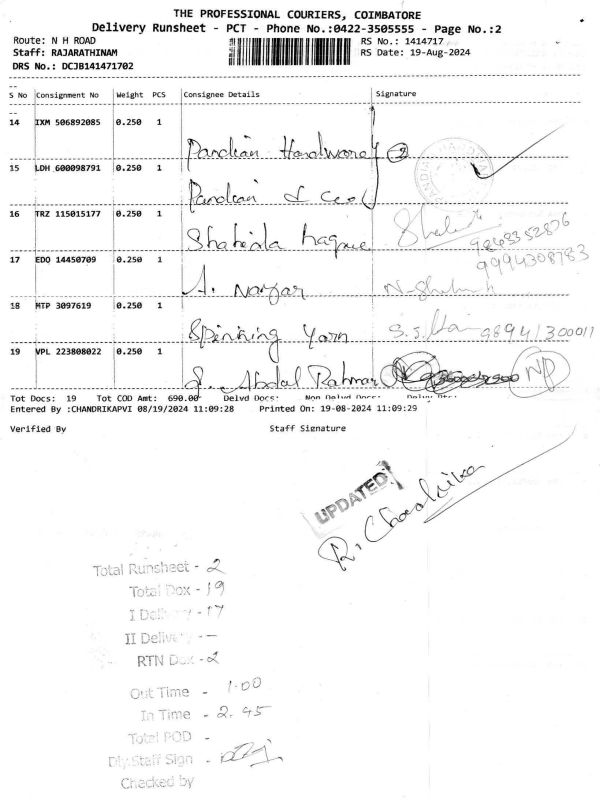 THE PROFESSIONAL COURIERS, COIMBATORE
Delivery Runsheet - PCT - Phone No.:0422-3505555 - Page No.:2
Route: N H ROAD RS No.: 1414717
Staff: RAJARATHINAM RS Date: 19-Aug-2024
DRS No.: DCJB141471702
S No Consignment No Weight PCS Consignee Details Signature
14 IXM 506892085 0.250 1
Pandian Hardware 2
15 LDH 600098791 0.250 1
Pandian &
16 TRZ 115015177 0.250 1
Shahinla haque 9843352876
9994308783
17 EDO 14450709 0.250 1
A. Nayar
18 MTP 3097619 0.250 1
Spinning Yarn 9894130001
19 VPL 223808022 0.250 1
Abdal Rahman ND
Tot Docs: 19 Tot COD Amt: 690.00 Delvd Docs: Non Delvd Docs:
Entered By :CHANDRIKAPVI 08/19/2024 11:09:28 Printed On: 19-08-2024 11:09:29
Verified By Staff Signature
UPDATED
R. Chandrika
Total Runsheet - 2
Total Dox - 19
I Delivery - 17
II Delivery - -
RTN Dox - 2
Out Time - 1.00
In Time - 2.45
Total POD -
Dly.Staff Sign -
Checked by